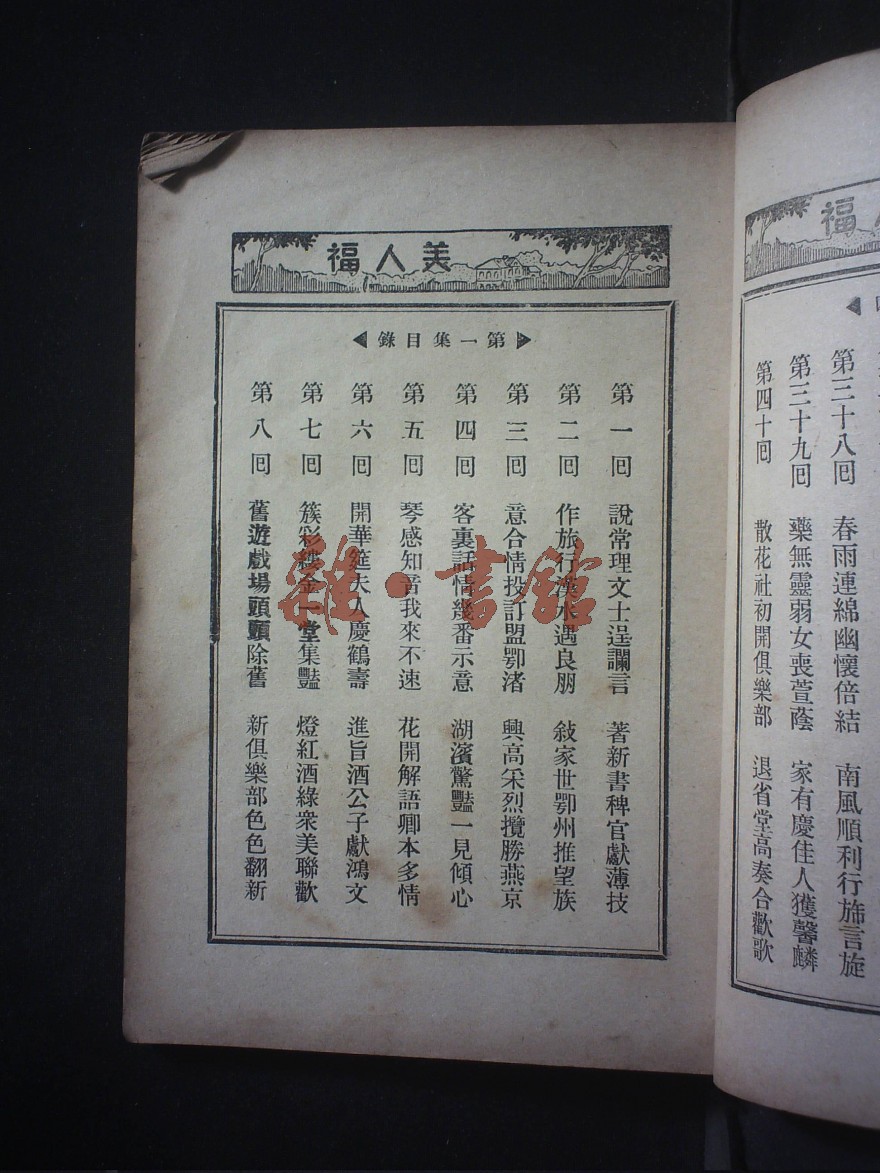 福
第三十八回 春雨連綿幽懷倍結 南風順利行旆言旋
第三十九回 藥無靈弱女喪萱蔭 家有慶佳人獲馨麟
第四十回 散花社初開俱樂部 退省堂高奏合歡歌
美人福
第一集目錄
第一回 說常理文士逞讕言 著新書稗官獻薄技
第二回 作旅行漢水遇良朋 敍家世鄂州推望族
第三回 意合情投訂盟鄂渚 興高采烈攬勝燕京
第四回 客裏話情幾番示意 湖濱驚豔一見傾心
第五回 琴感知音我來不速 花開解語卿本多情
第六回 開華筵夫人慶鶴壽 進旨酒公子獻鴻文
第七回 簇彩縷金一堂集豔 燈紅酒綠衆美聯歡
第八回 舊遊戲場頭頭除舊 新俱樂部色色翻新
雜·書館